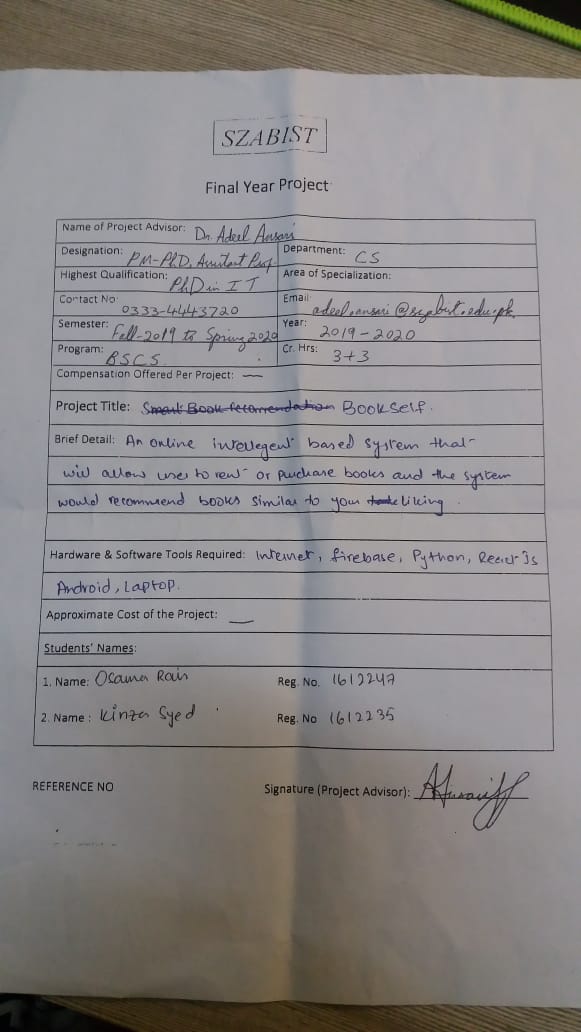 SZABIST
Final Year Project
Name of Project Advisor: Dr. Adeel Ansari
Designation: PM-PhD, Assistant Prof. Department: CS
Highest Qualification: PhD in IT Area of Specialization:
Contact No: 0333-4443720 Email: adeel.ansari@szabist.edu.pk
Semester: Fall-2019 to Spring 2020 Year: 2019-2020
Program: BSCS Cr. Hrs: 3+3
Compensation Offered Per Project: —
Project Title: Smart Book recomendation BOOKSELF.
Brief Detail: An online intellegent based system that
will allow user to rent or purchase books and the system
would recommend books similar to your liking.
Hardware & Software Tools Required: Internet, firebase, Python, React Js
Android, Laptop.
Approximate Cost of the Project: —
Students' Names:
1. Name: Osama Rais Reg. No. 1612247
2. Name: Kinza Syed Reg. No 1612235
REFERENCE NO Signature (Project Advisor):